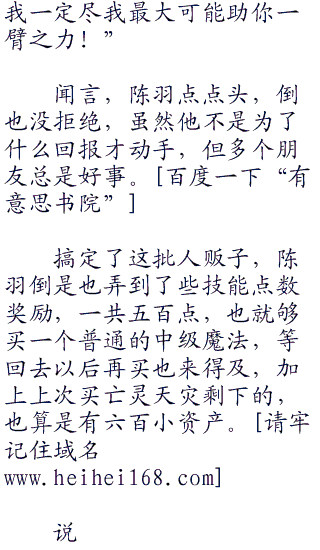 我一定尽我最大可能助你一
臂之力！”
闻言，陈羽点点头，倒
也没拒绝，虽然他不是为了
什么回报才动手，但多个朋
友总是好事。[百度一下“有
意思书院”]
搞定了这批人贩子，陈
羽倒是也弄到了些技能点数
奖励，一共五百点，也就够
买一个普通的中级魔法，等
回去以后再买也来得及，加
上上次买亡灵天灾剩下的，
也算是有六百小资产。[请牢
记住域名
www.heihei168.com]
说